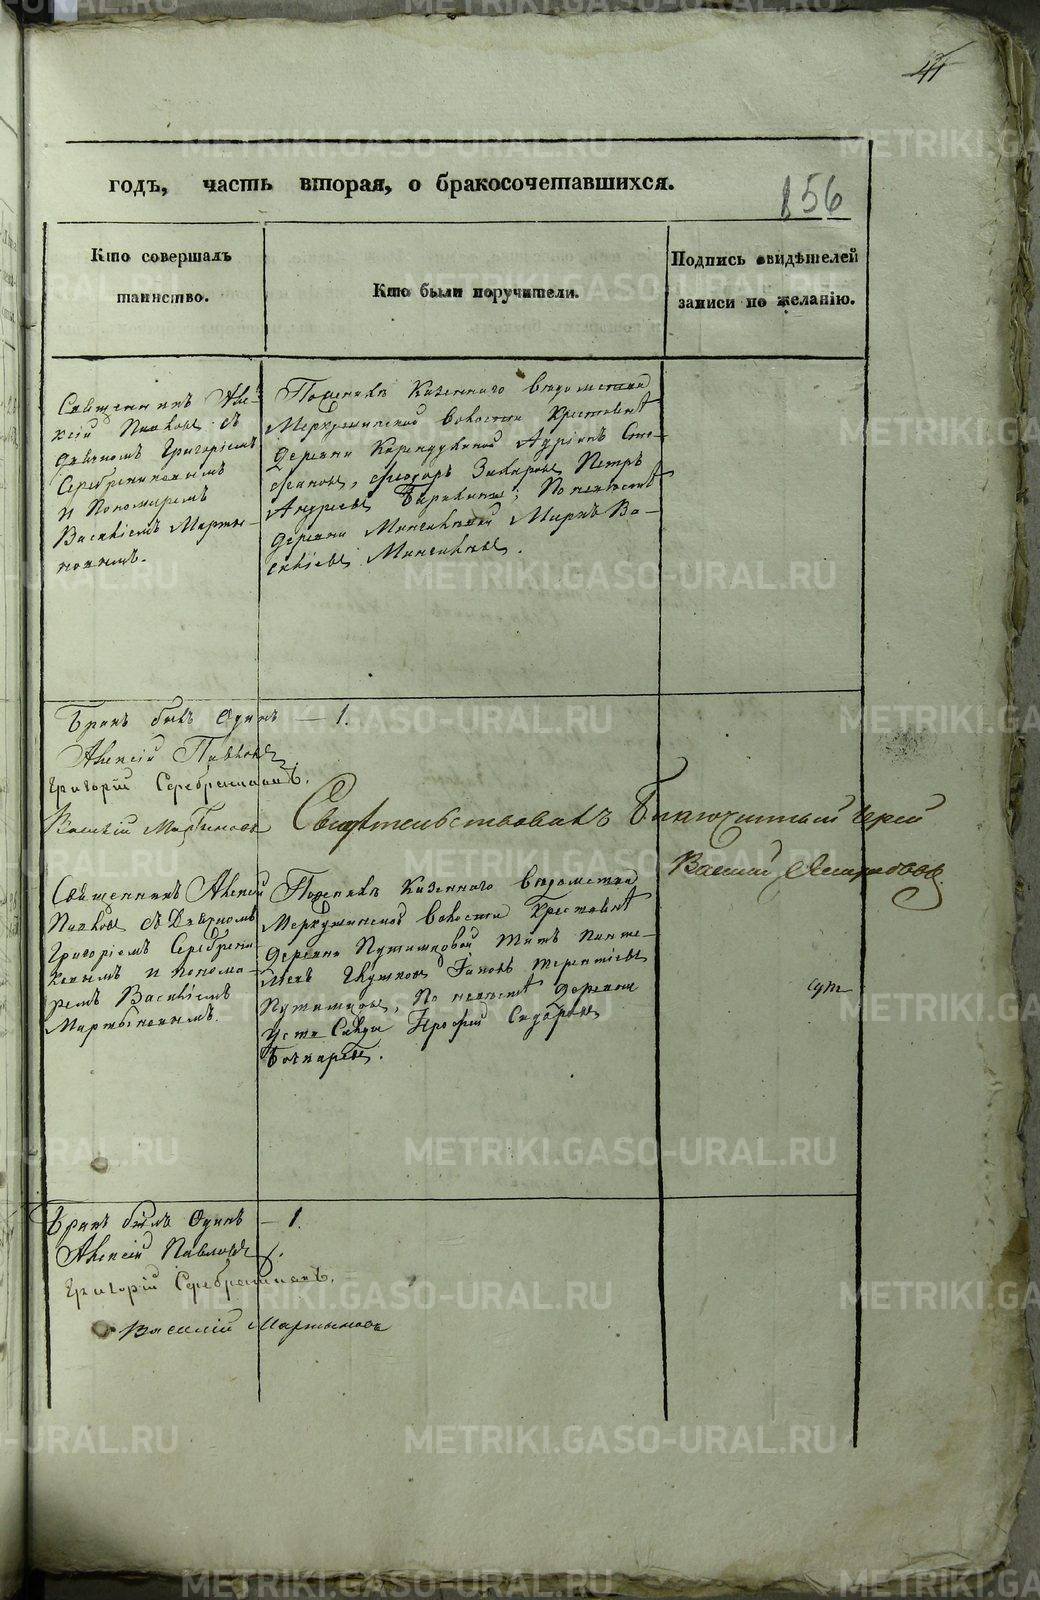 41
годъ, часть вторая, о бракосочетавшихся.
156
Кто совершалъ
таинство.
Кто были поручители.
Подпись свидѣтелей
записи по желанію.
Священникъ Але-
ксій Павловъ съ
дьячкомъ Григоріемъ
Серебрениковымъ
и Пономаремъ
Василіемъ Марты-
новымъ.
По женихѣ Казеннаго вѣдомства
Меркушинской волости крестьяне
деревни Адріанъ Сте-
фановъ, Феодоръ Захаровъ, Петръ
Андреевъ по невѣстѣ
деревни Маркъ Ва-
силіевъ
Бракъ былъ Одинъ — 1.
Алексій Павловъ
Григорій Серебренниковъ.
Василій Мартыновъ
Свидѣтельствовалъ Благочинный Іерей
Василій
Священникъ Алексій
Павловъ съ Дьячкомъ
Григоріемъ Серебрени-
ковымъ и понома-
ремъ Василіемъ
Мартыновымъ.
По женихѣ Казеннаго вѣдомства
Меркушинской волости крестьяне
деревни Путимцовой Титъ Панте-
Іаковъ Терентіевъ
Путимцовъ, По невѣстѣ деревни
Усть Салды Сидоровъ
Бочкаревъ.
Бракъ былъ Одинъ — 1.
Алексій Павловъ.
Григорій Серебренниковъ.
Василій Мартыновъ
METRIKI.GASO-URAL.RU